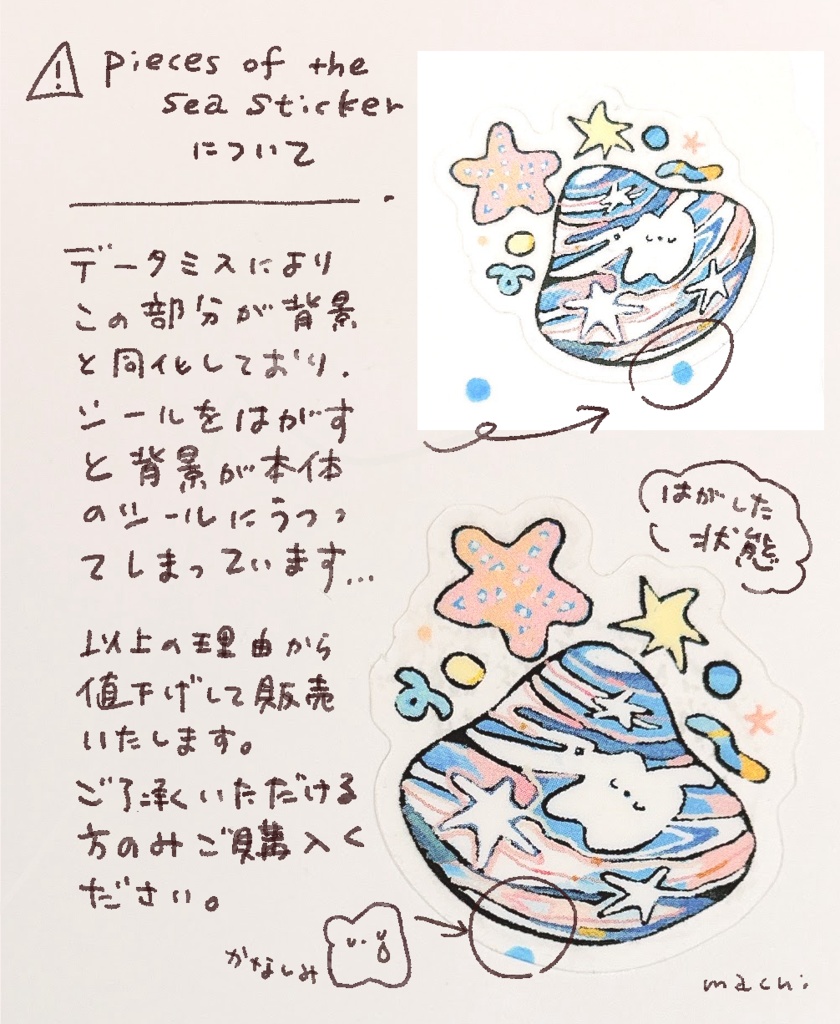 pieces of the
sea sticker
について
データミスにより
この部分が背景
と同化しており、
シールをはがす
と背景が本体
のシールにうつっ
てしまっています...
以上の理由から
値下げして販売
いたします。
ご了承いただける
方のみご購入く
ださい。
はがした
状態
かなしみ
machi